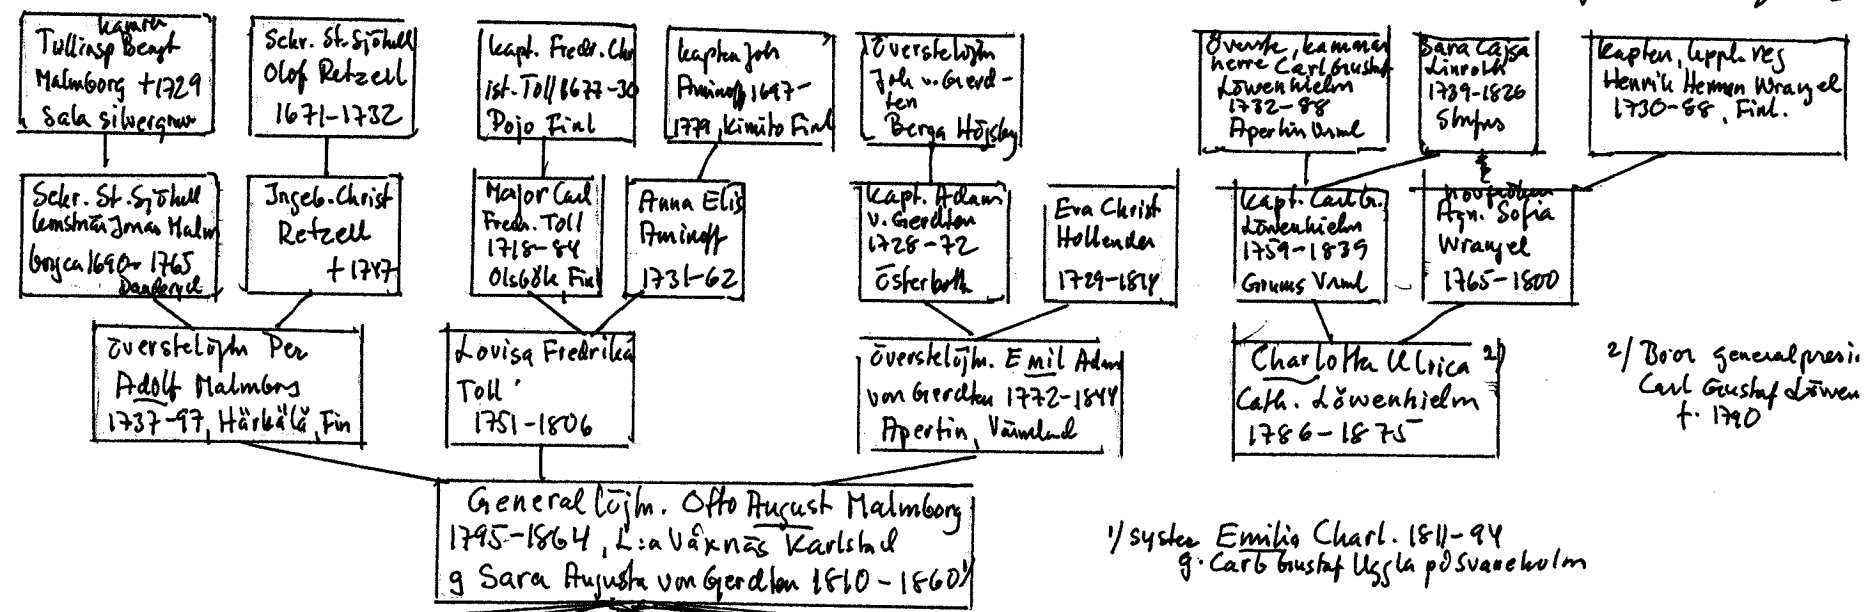 kamrer
Tullinsp Bengt
Malmborg +1729
Sala silvergruv
Sekr. St. Sjötull
Olof Retzell
1671-1732
kapt. Fredr. Chr
ist. Toll 1677-30
Pojo Finl
kapten Joh
Aminoff 1697-
1779, Kimito Finl
Överstelöjtn
Joh v. Gerd-
ten
Berga Högsby
Överste, kammar
herre Carl Gustaf
Löwenhielm
1732-88
Apertin Vrml
Sara Cajsa
Linroth
1739-1826
Strufus
Kapten, Uppl. reg
Henrik Herman Wrangel
1730-88, Finl.
Sekr. St. Sjötull
konstnär Jonas Malm
borg ca 1690-1765
Danderyd
Ingeb. Christ
Retzell
+1747
Major Carl
Fredr. Toll
1718-84
Olsböle Finl
Anna Elis
Aminoff
1731-62
Kapt. Adam
v. Gerdten
1728-72
Österbott
Eva Christ
Hollender
1729-1814
Kapt. Carl G.
Löwenhielm
1759-1839
Grums Vrml
hovfröken
Agn. Sofia
Wrangel
1765-1800
Överstelöjtn Per
Adolf Malmborg
1737-97, Härkälä, Fin
Lovisa Fredrika
Toll
1751-1806
Överstelöjtn. Emil Adam
von Gerdten 1772-1844
Apertin, Värmland
Charlotta Ulrica 2)
Cath. Löwenhielm
1786-1875
2/ Bror generalpresi
Carl Gustaf Löwen
f. 1790
Generallöjtn. Otto August Malmborg
1795-1864, L:a Våxnäs Karlstad
g Sara Augusta von Gerdten 1810-1860 1)
1/ syster Emilia Charl. 1811-94
g. Carl Gustaf Uggla på Svaneholm